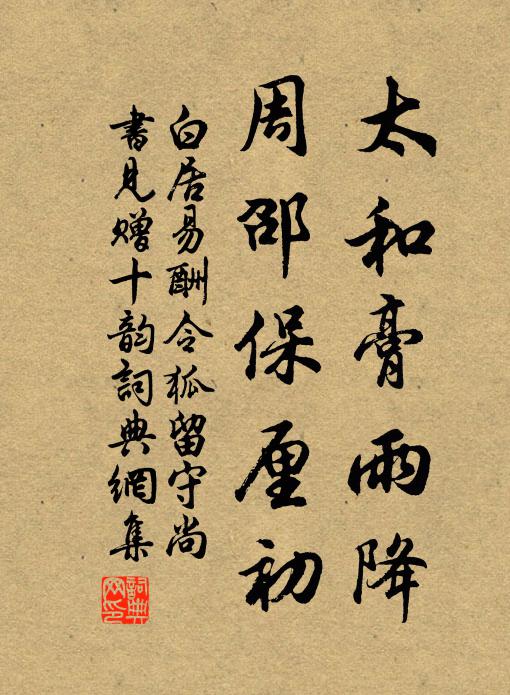 太和膏雨降
周邵保厘初
白居易酬令狐留守尚
書見赠十韵詞典網集
詞典网印